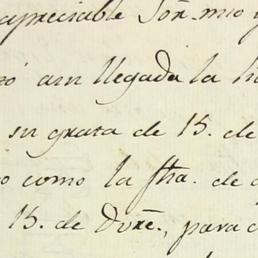 apreciable Sõr. mio y
ó am llegada la h
su grata de 15. de
o como la fha. de
15. de Dvrẽ., para